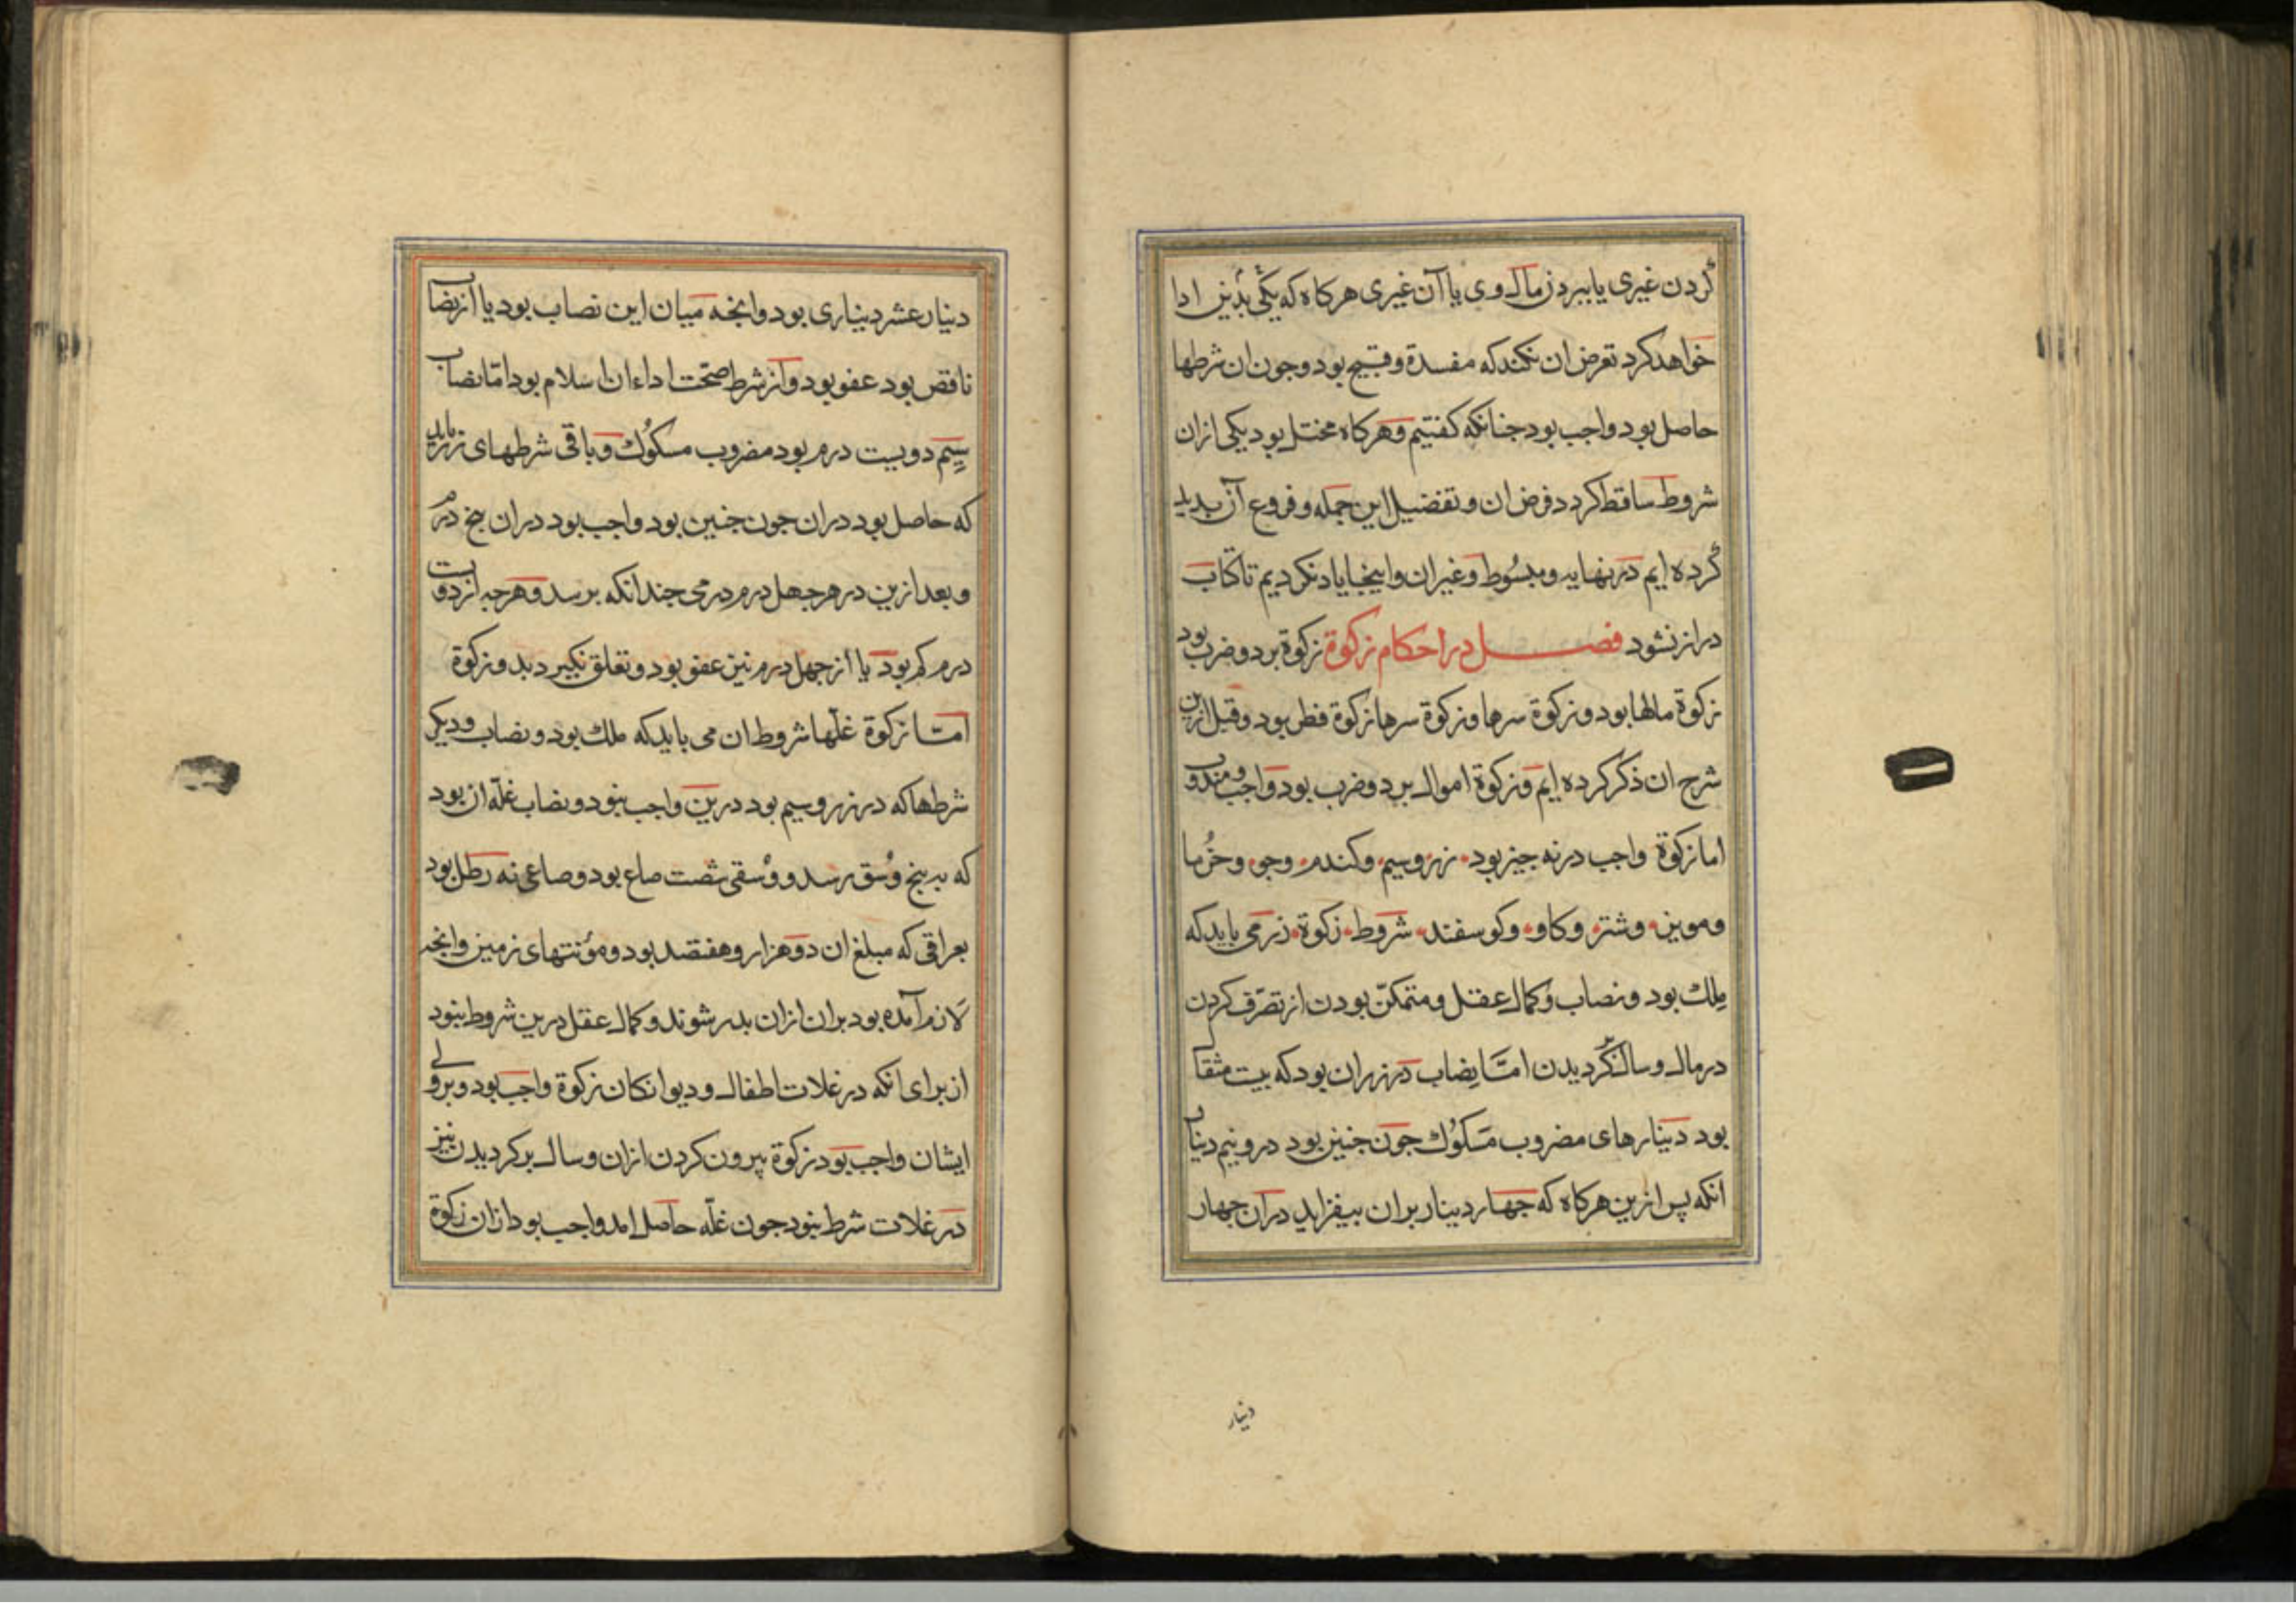 کردن غیری یا ببرد ز مال وی یا آن غیری هرکاه که یکی بدین ادا
خواهد کرد تعرض ان نکند که مفسدة و قبیح بود و جون ان شرطها
حاصل بود واجب بود جنانکه کفتیم و هرکاه مختل بود یکی ازان
شروط ساقط کردد فرض ان و تفضیل این جمله و فروع آن بدید
کرده ایم در نهایه و مبسُوط و غیر ان و اینجا یاد نکردیم تا کتاب
دراز نشود فصل در احکام زکوة زکوة بر دو ضرب بود
زکوة مالها بود و زکوة سرها و زکوة سرها زکوة فطر بود و قبل ازین
شرح ان ذکر کرده ایم و زکوة اموال بر دو ضرب بود واجب و مندوب
اما زکوة واجب در نه جیز بود زر و سیم و کندم و جو و خُرما
و مویز و شتر و کاو و کوسفند شروط زکوة زر می باید که
مِلك بود و نصاب و کمال عقل و متمکّن بودن از تصرّف کردن
در مال و سال کردیدن امّا نِضاب در زر ان بود که بیست مثقا
بود دینارهای مضروب مَسکوُك جون جنین بود درو نیم دینا
انکه پس ازین هرکاه که جهار دینار بران بیفزاید دران جهار
دنیار
دنیار عشر دیناری بود و انجه میان این نصاب بود یا از نضاب
ناقص بود عفو بود و از شرط صحّت اداء ان اسلام بود امّا نصاب
سیِم دویست درم بود مضروب مسکوُك و باقی شرطهای زر باید
که حاصل بود دران جون جنین بود واجب بود دران پنج درم
و بعد ازین در هر جهل درم درمی جندانکه برسد و هرجه از دویست
درم کم بود یا از جهل درم نیز عفو بود و تعلق نکیرد بدو زکوة
امّا زکوة غلّها شروط ان می باید که ملك بود و نصاب و دیکر
شرطها که در زر و سیم بود درین واجب نبود و نصاب غلّه ان بود
که به پنج وُسق رسد و وُسقی شصت صاع بود و صاعی نه رطل بود
بعراقی که مبلغ ان دو هزار و هفتصد بود و موُنتهای زمین و انجه
لازم آمده بود بران ازان بدر شوند و کمال عقل درین شروط نبود
از برای انکه در غلات اطفال و دیوانکان زکوة واجب بود و بر ولی
ایشان واجب بود زکوة بیرون کردن ازان و سال برکردیدن نیز
در غلات شرط نبود جون غلّه حاصل امد واجب بود ازان زکوة